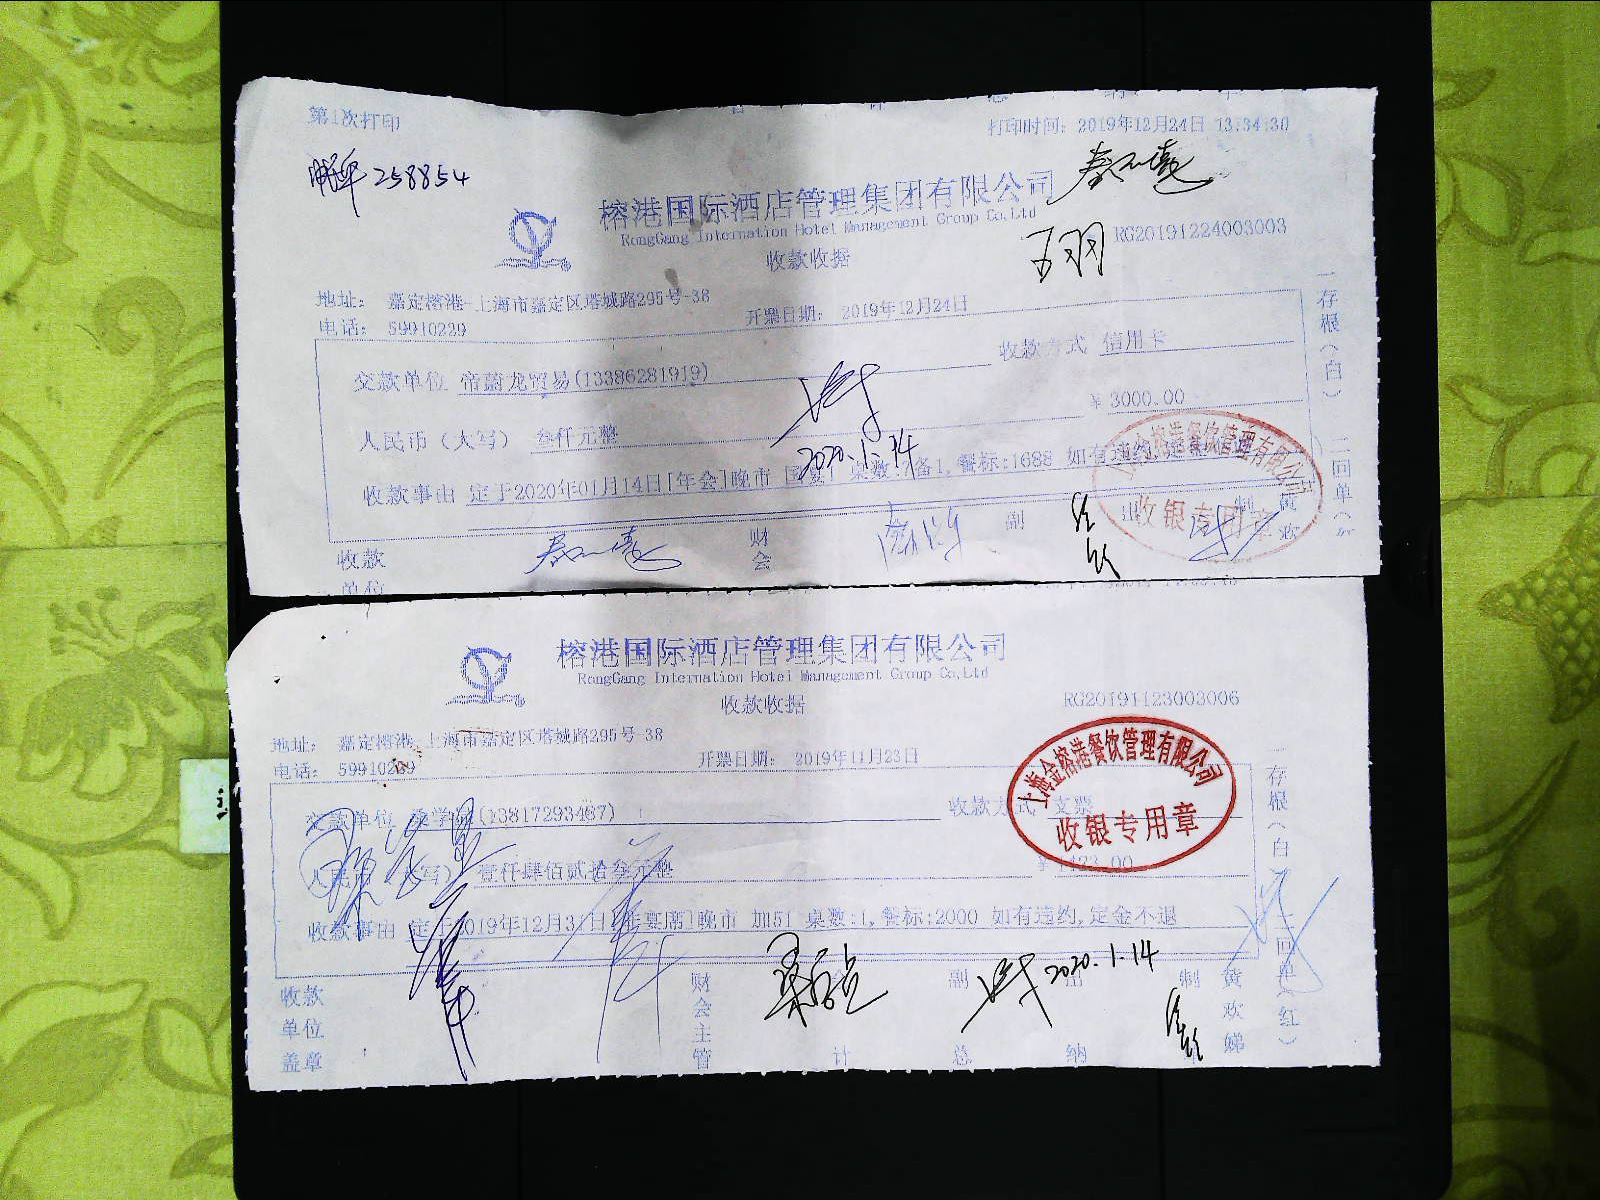 第1次打印
打印时间: 2019年12月24日 13:34:30
258854
榕港国际酒店管理集团有限公司
RongGang Internation Hotel Management Group Co,Ltd
收款收据
RG20191224003003
地址: 嘉定榕港-上海市嘉定区塔城路295号-38
电话: 59910229
开票日期: 2019年12月24日
交款单位 帝蔚龙贸易(13386281919)
收款方式 信用卡
人民币(大写) 叁仟元整
¥ 3000.00
收款事由 定于2020年01月14日[年会]晚市 桌数: 备1, 餐标:1688 如有违约,定
2020.1.14
收款
单位
财
会
副
制
黄
欢
一存根(白)
二回单(
收银专用章
榕港国际酒店管理集团有限公司
RongGang Internation Hotel Management Group Co,Ltd
收款收据
RG20191123003006
地址: 嘉定榕港-上海市嘉定区塔城路295号-38
电话: 59910229
开票日期: 2019年11月23日
交款单位 (13817293467)
收款方式 支票
上海金榕港餐饮管理有限公司
收银专用章
壹仟肆佰贰拾叁元整
¥ 1423.00
收款事由 定于2019年12月31日[年宴席]晚市 加51 桌数:1, 餐标:2000 如有违约,定金不退
2020.1.14
收款
单位
盖章
财会主管
副
计
总
出
纳
制
黄欢娣
一存根(白)
二回单(红)